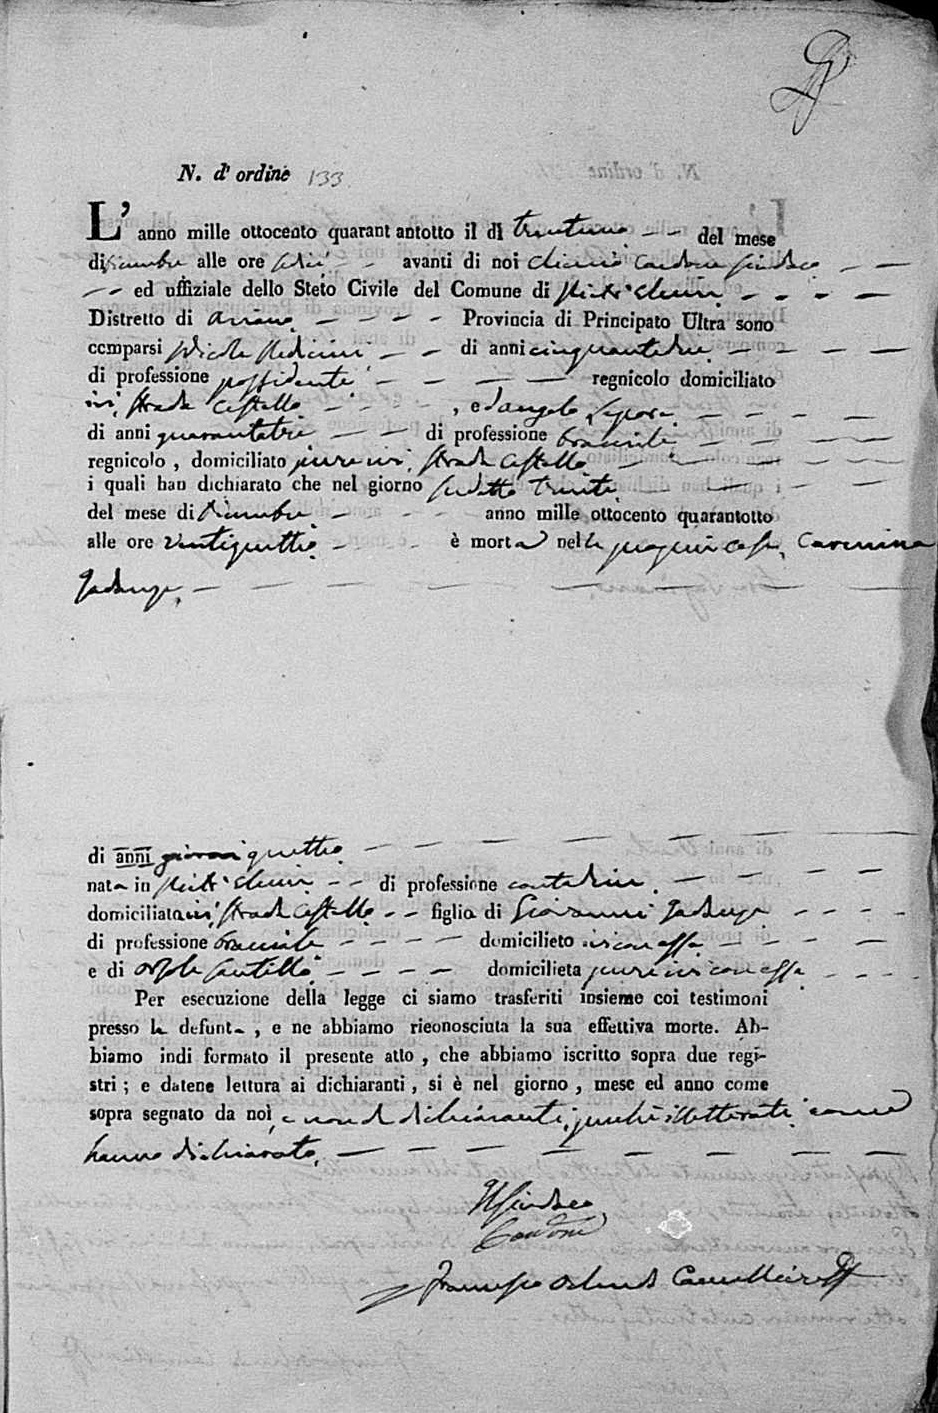 N. d' ordine 133
L' anno mille ottocento quarant antotto il di trentuno del mese
di Dicembre alle ore sedici avanti di noi Cardone Sindaco
ed uffiziale dello Steto Civile del Comune di
Distretto di Ariano Provincia di Principato Ultra sono
comparsi Nicola di anni cinquantadue
di professione possidente regnicolo domiciliato
ivi, strada Castello , ed Angelo Lepore
di anni quarantatre di professione bracciale
regnicolo , domiciliato pure ivi, strada Castello
i quali han dichiarato che nel giorno sudetto trenta
del mese di Dicembre anno mille ottocento quarantotto
alle ore ventiquattro è morta nella propria casa, Carmina

di anni giorni quattro
nata in di professione contadina
domiciliata ivi, strada Castello figlia di Giovanni
di professione bracciale domicilieto ivi con essa
e di Santella domicilieta pure ivi con essa
Per esecuzione della legge ci siamo trasferiti insieme coi testimoni
presso la defunta , e ne abbiamo rieonosciuta la sua effettiva morte. Ab-
biamo indi formato il presente atto , che abbiamo iscritto sopra due regi-
stri ; e datene lettura ai dichiaranti , si è nel giorno , mese ed anno come
sopra segnato da noi, e non da dichiaranti, perchè illetterati come
hanno dichiarato.
Il Sindaco
Cardone
Cancelliere